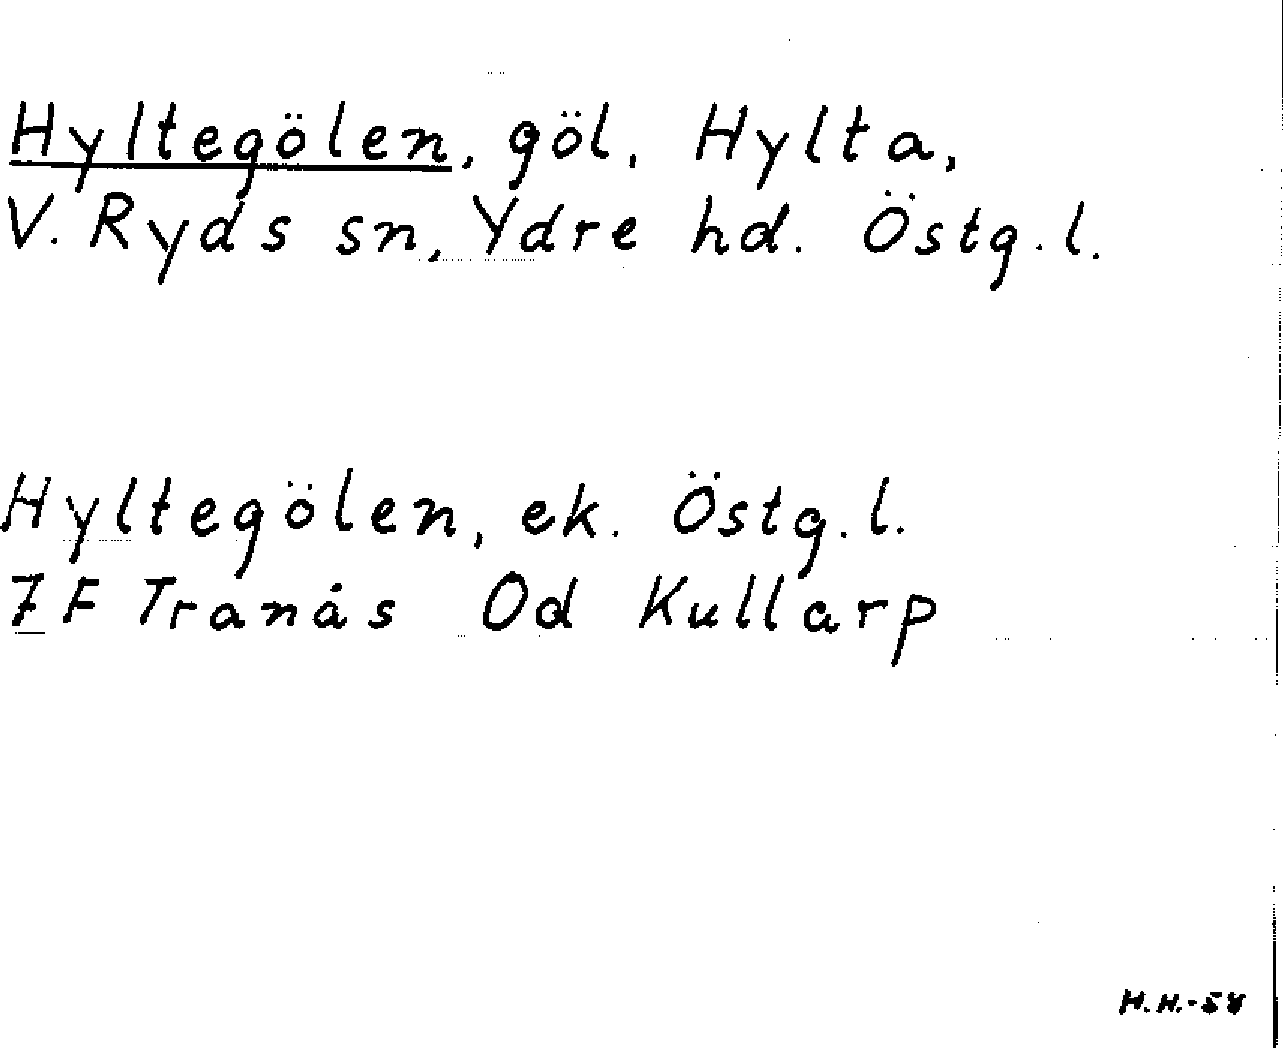 Hyltegölen, göl, Hylta,
V. Ryds sn, Ydre hd. Östg. l.
Hyltegölen, ek. Östg. l.
7F Tranås Od Kullarp
H.H.-58